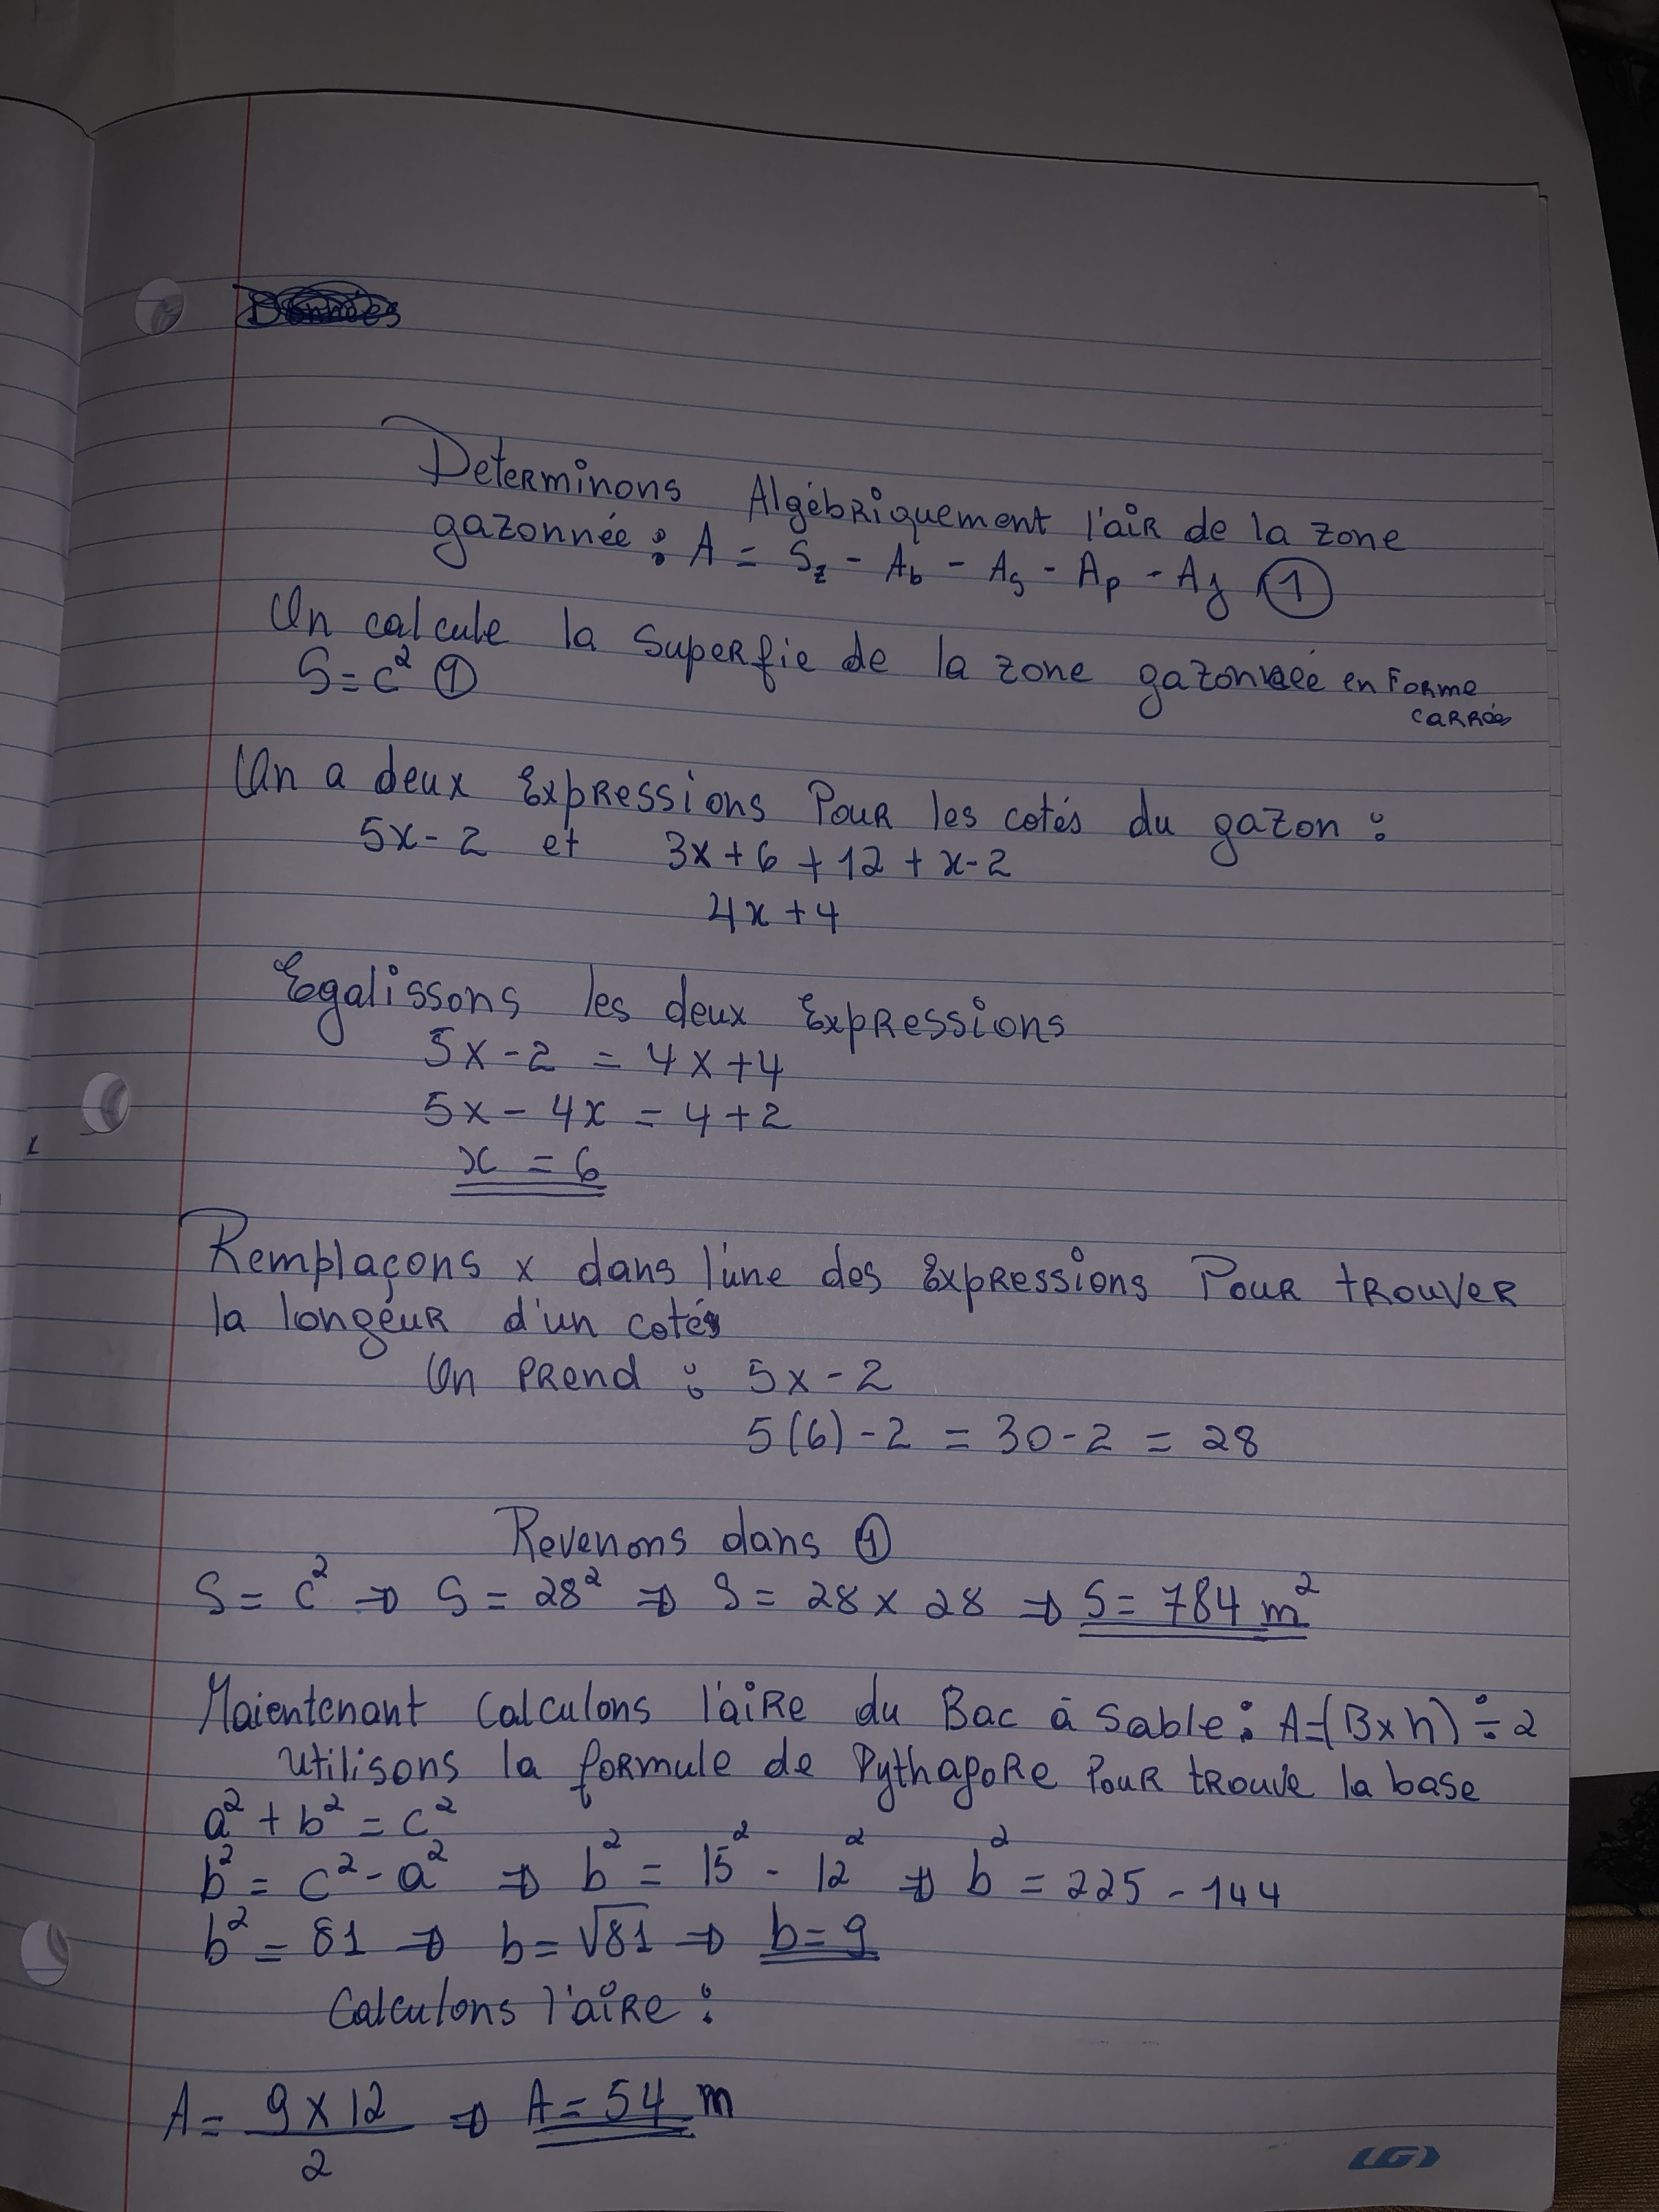 Données
Determinons Algébriquement l'air de la zone
gazonnée : A = Sz - Ab - As - Ap - Aj ①
On calcule la superfie de la zone gazonnée en forme
carrée
S = c² ①
On a deux Expressions Pour les cotés du gazon :
5x - 2 et 3x + 6 + 12 + x - 2
4x + 4
Egalissons les deux Expressions
5x - 2 = 4x + 4
5x - 4x = 4 + 2
x = 6
Remplaçons x dans l'une des Expressions Pour trouver
la longeur d'un coté
On Prend : 5x - 2
5(6) - 2 = 30 - 2 = 28
Revenons dans ①
S = c² ⇒ S = 28² ⇒ S = 28 x 28 ⇒ S = 784 m²
Maientenant Calculons l'aire du Bac à Sable : A = (B x h) ÷ 2
utilisons la formule de Pythagore Pour trouve la base
a² + b² = c²
b² = c² - a² ⇒ b² = 15² - 12² ⇒ b² = 225 - 144
b² = 81 ⇒ b = √81 ⇒ b = 9
Calculons l'aire :
A = 9 x 12 / 2 ⇒ A = 54 m